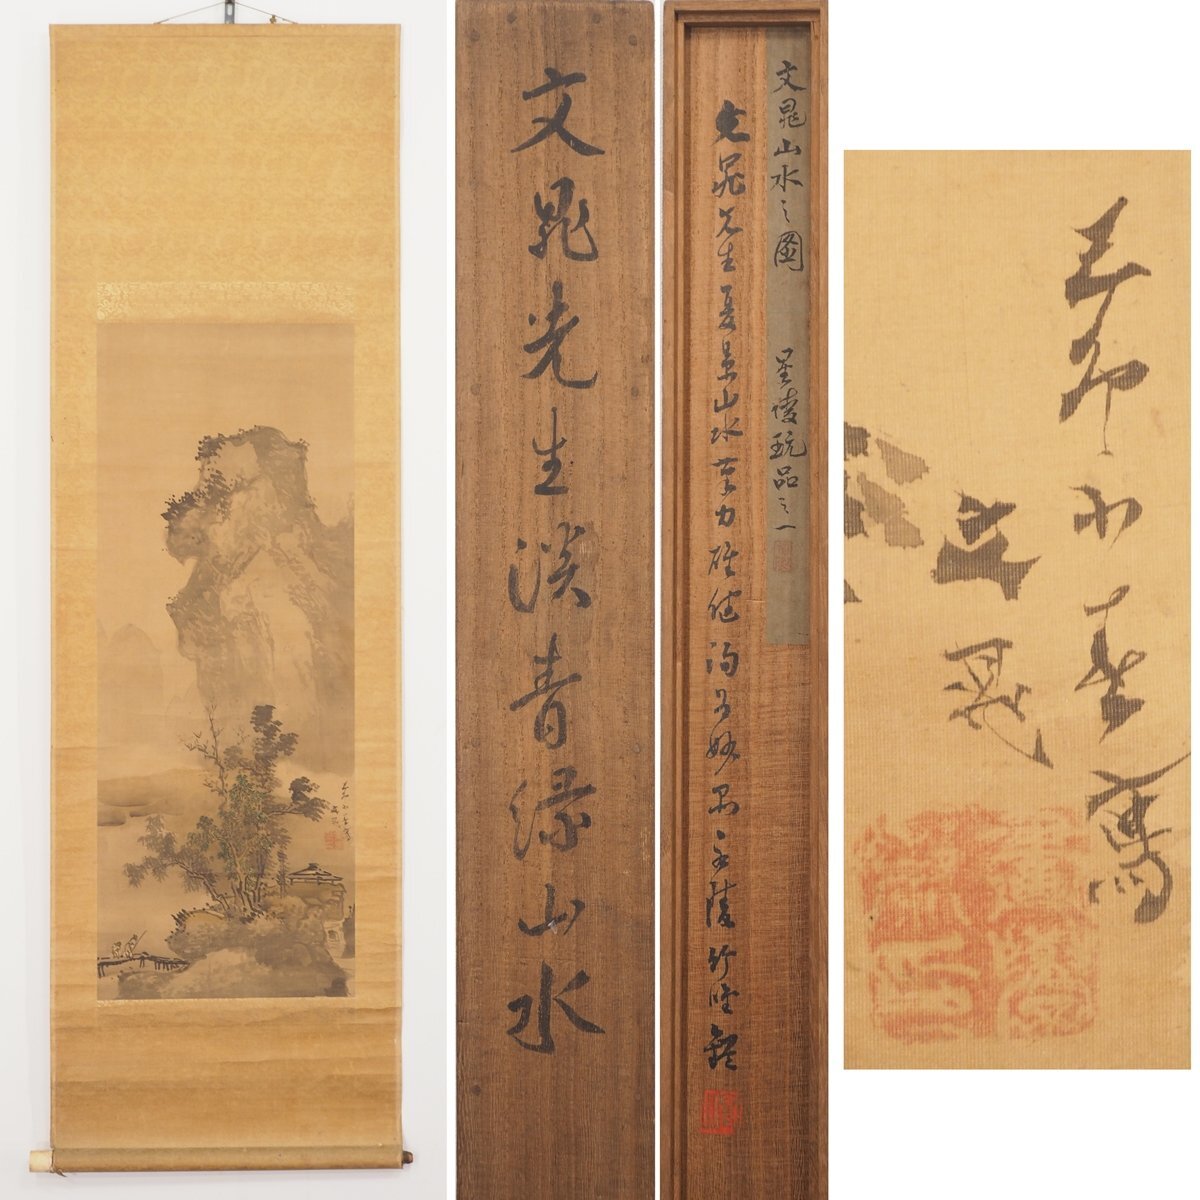 文晁先生淡青緑山水
文晁山水之圖 星陵玩品之一
文晁先生夏景山水筆力雄健洵可妙品 竹 題
壬 小春寫
文晁